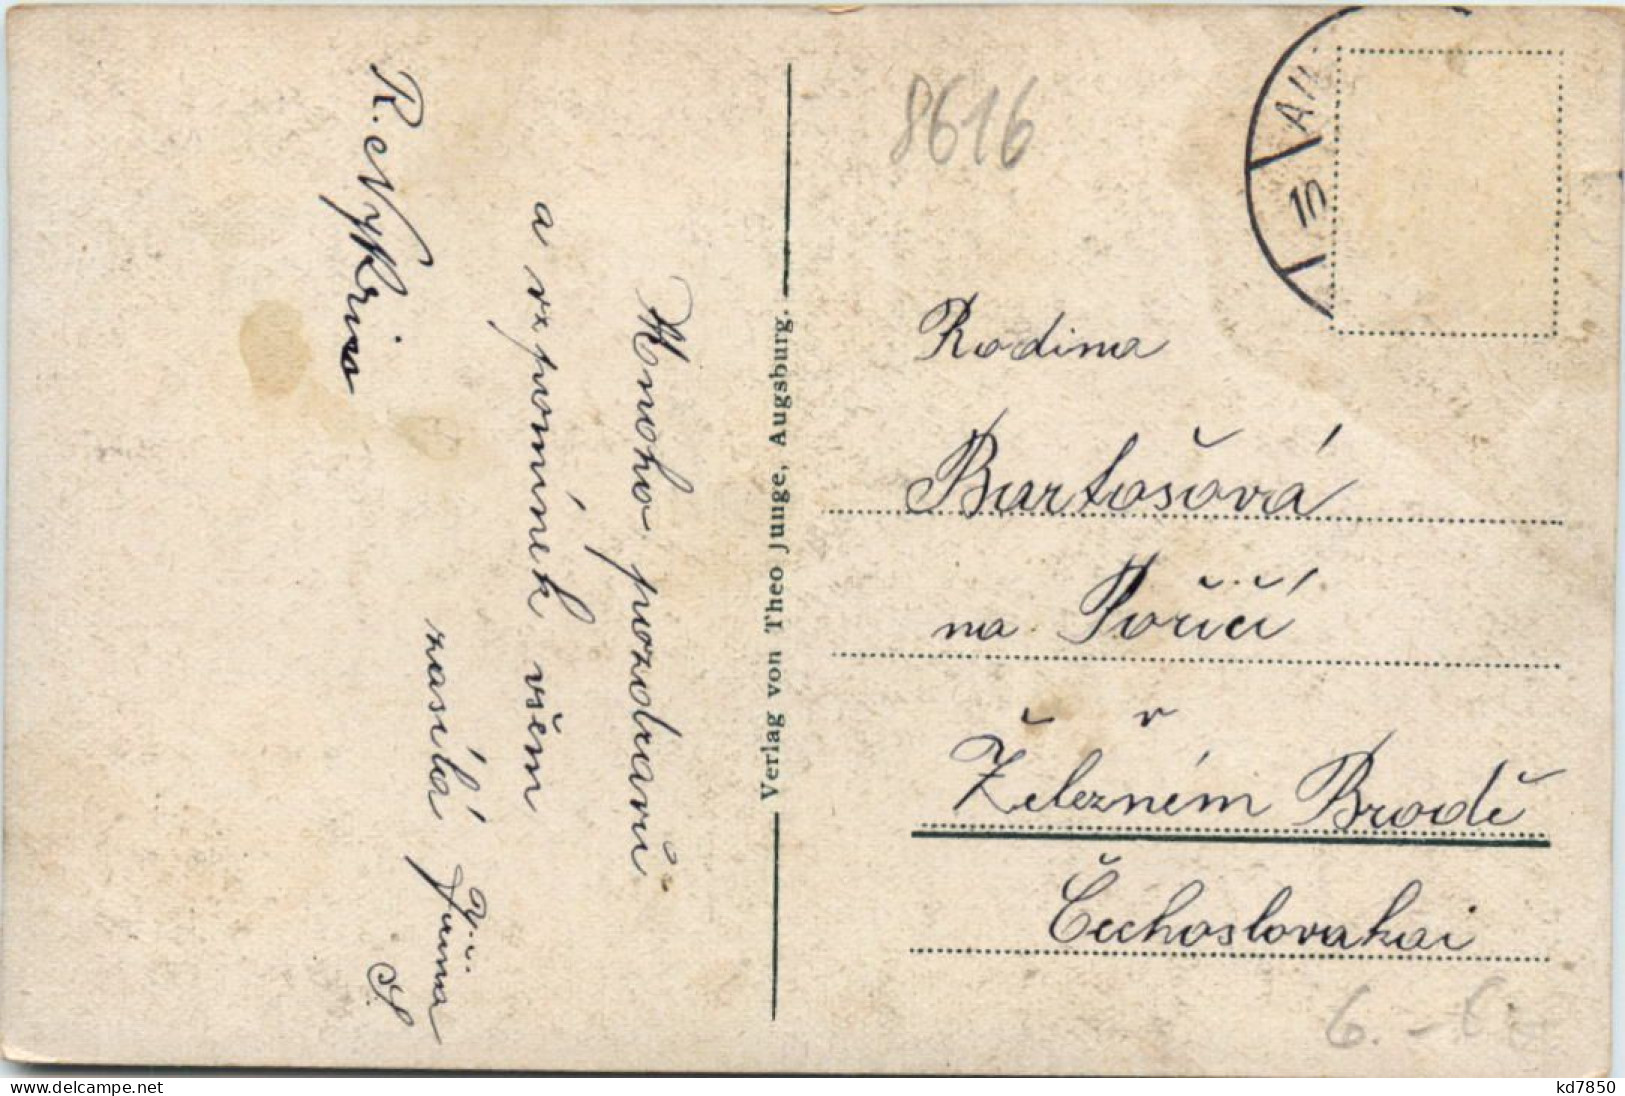 Mnoho pozdravů
a vzpomínek všem
zasílá Jiřina S.
R. Vykřina
Verlag von Theo Junge, Augsburg.
8616
10
Rodina
Bartošová
na Poříčí
v
Železném Brodě
Čechoslovakai
6.-
www.delcampe.net
kd7850